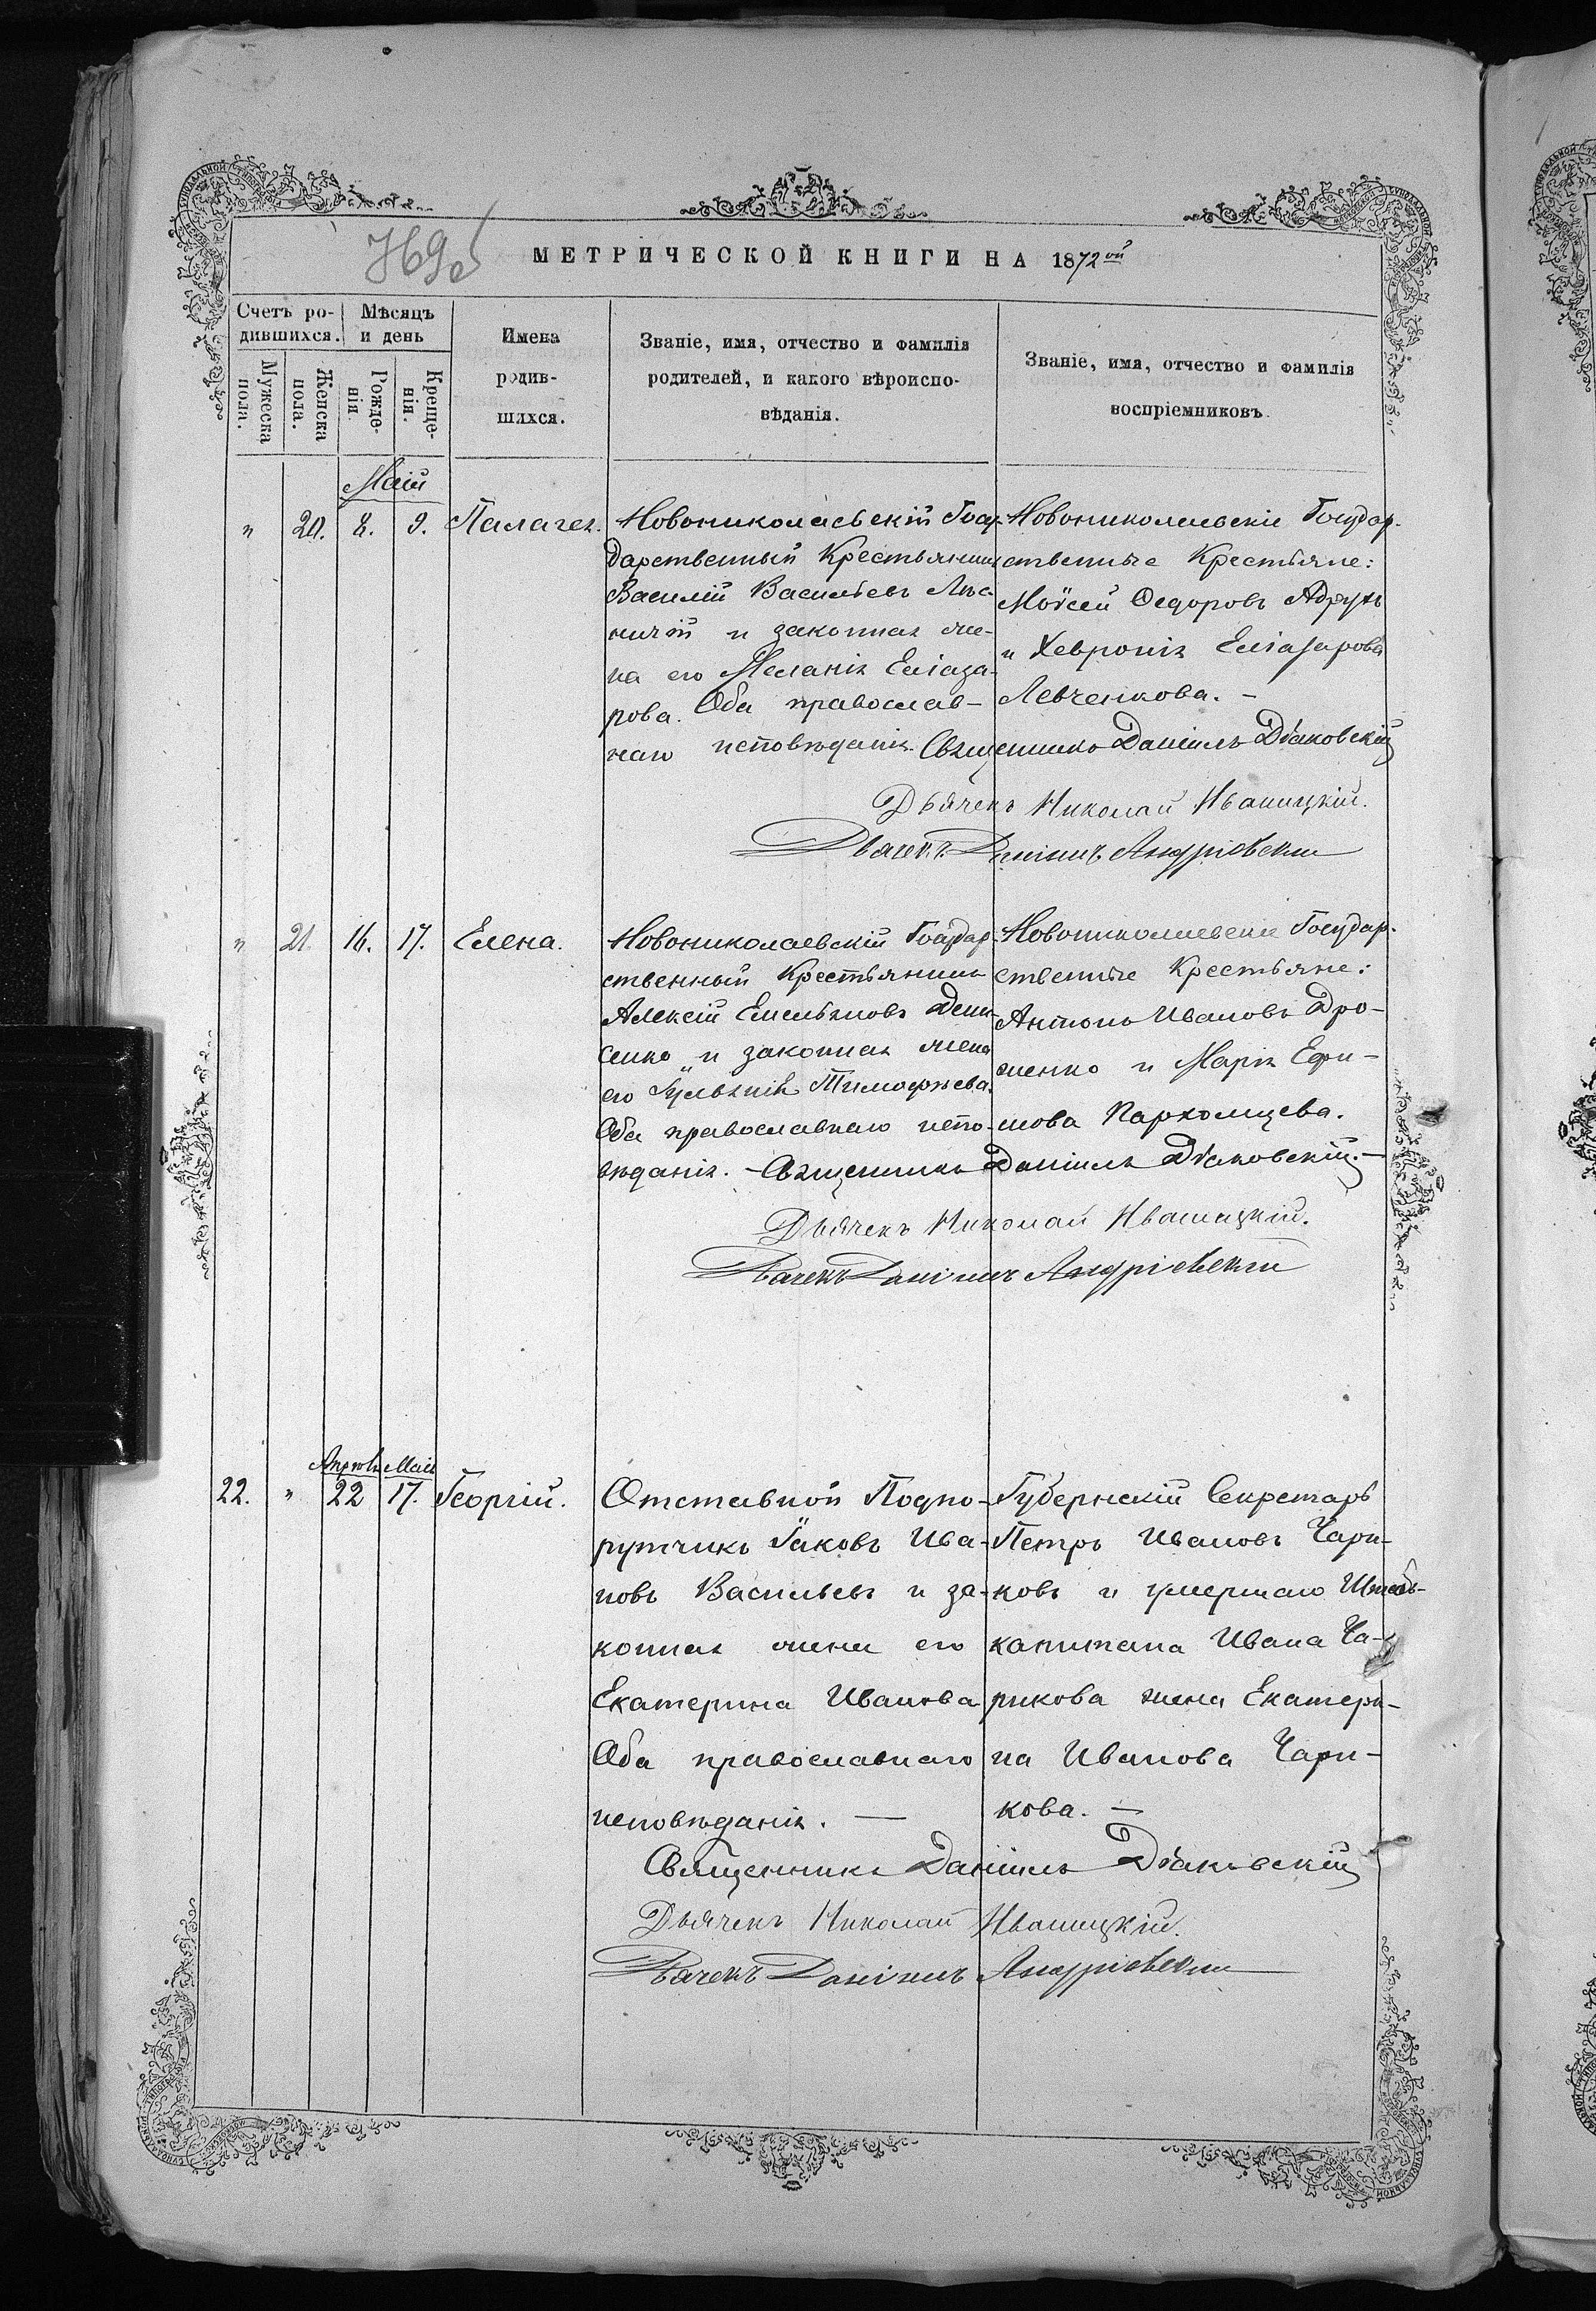 МЕТРИЧЕСКОЙ КНИГИ НА 1872ой
Счетъ ро-
дившихся.
Мѣсяцъ
и день
Мужеска
пола.
Женска
пола.
Рожде-
нія.
Креще-
нія.
Имена
родив-
шихся.
Званіе, имя, отчество и фамилія
родителей, и какого вѣроиспо-
вѣданія.
Званіе, имя, отчество и фамилія
воспріемниковъ.
Маій
" 20. 8. 9. Палагея.
Новониколаевскій Госу-
дарственный Крестьянинъ
Василій Васильевъ Лѣс-
ничій и законная же-
на его Меланія Еліаза-
рова. Оба православ-
наго исповѣданія.
Новониколаевскіе Государ-
ственные Крестьяне:
Моѵсей Ѳедоровъ
и Хевронія Еліазарова
Левченкова. –
Священникъ Даніилъ Дьаковскій
Дьячекъ Николай Иваницкій.
Дьячекъ Даніилъ Андріевскій
" 21. 16. 17. Елена.
Новониколаевскій Государ-
ственный Крестьянинъ
Алексій Емельяновъ Дени-
сенко и законная жена
его Іуліанія Тимофѣева.
Оба православнаго испо-
вѣданія. –
Новониколаевскіе Государ-
ственные Крестьяне:
Антонъ Ивановъ Дро-
женко и Марія Ефи-
мова Пархомцева.
Священникъ Даніилъ Дьаковскій. –
Дьячекъ Николай Иваницкій.
Дьячекъ Даніилъ Андріевскій
Апрѣль Маій
22. " 22 17. Георгій.
Отставной Подпо-
рутчикъ Іаковъ Ива-
новъ Васильевъ и за-
конная жена его
Екатерина Иванова
Оба православнаго
исповѣданія. —
Губернскій Секретарь
Петръ Ивановъ Чари-
ковъ и умершаго Штабсъ-
капитана Ивана Ча-
рикова жена Екатери-
на Иванова Чари-
кова. —
Священникъ Даніилъ Дьаковскій
Дьячекъ Николай Иваницкій.
Дьячекъ Даніилъ Андріевскій